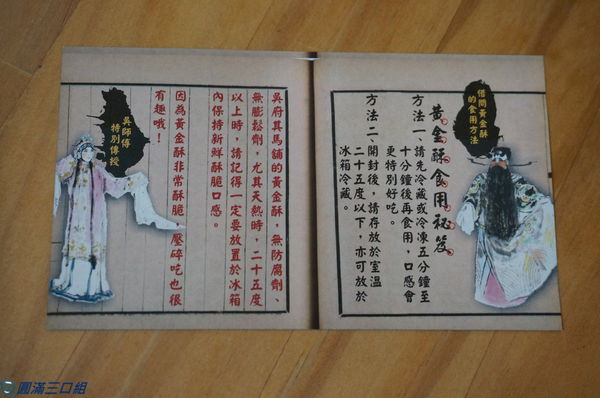 借問黃金酥
的食用方法
黃金酥食用秘笈
方法一 請先冷藏或冷凍五分鐘至
十分鐘後再食用，口感會
更特別好吃。
方法二 開封後，請存放於室溫
二十五度以下，亦可放於
冰箱冷藏。
吳師傅
特別傳授
吳府其馬舖的黃金酥，無防腐劑、
無膨鬆劑，尤其天熱時，二十五度
以上時，請記得一定要放置於冰箱
內保持新鮮酥脆口感。
因為黃金酥非常酥脆，壓碎吃也很
有趣哦！
圓滿三口組